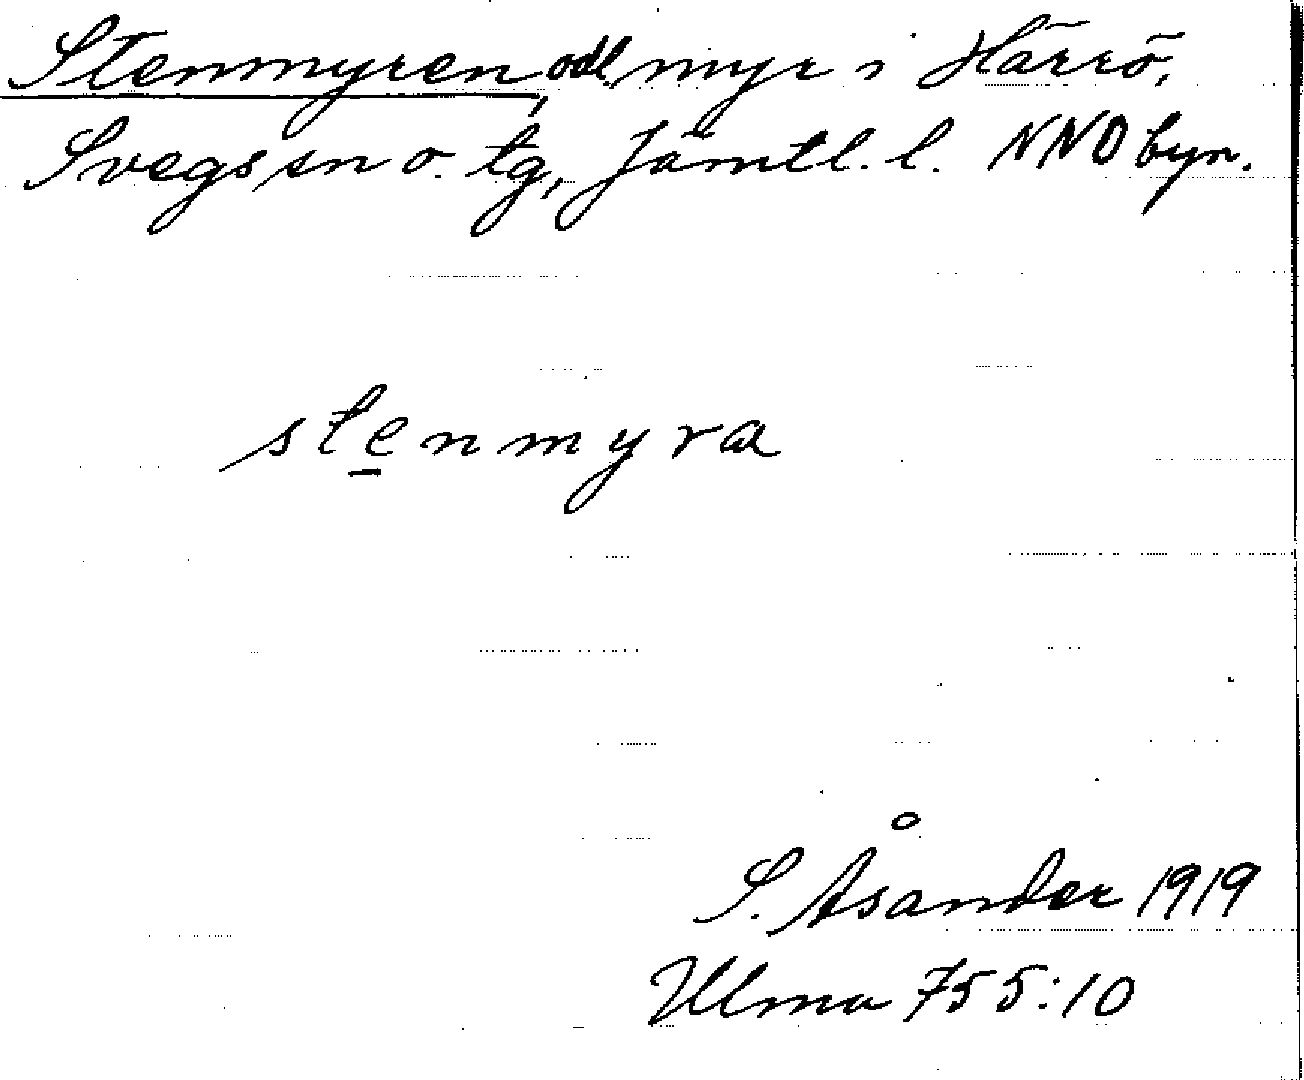 Stenmyren, odl. myr i Härrö,
Svegs sn o. tg, Jämtl. l. NNO byn.
stenmyra
S. Åsander 1919
Ulma 755:10